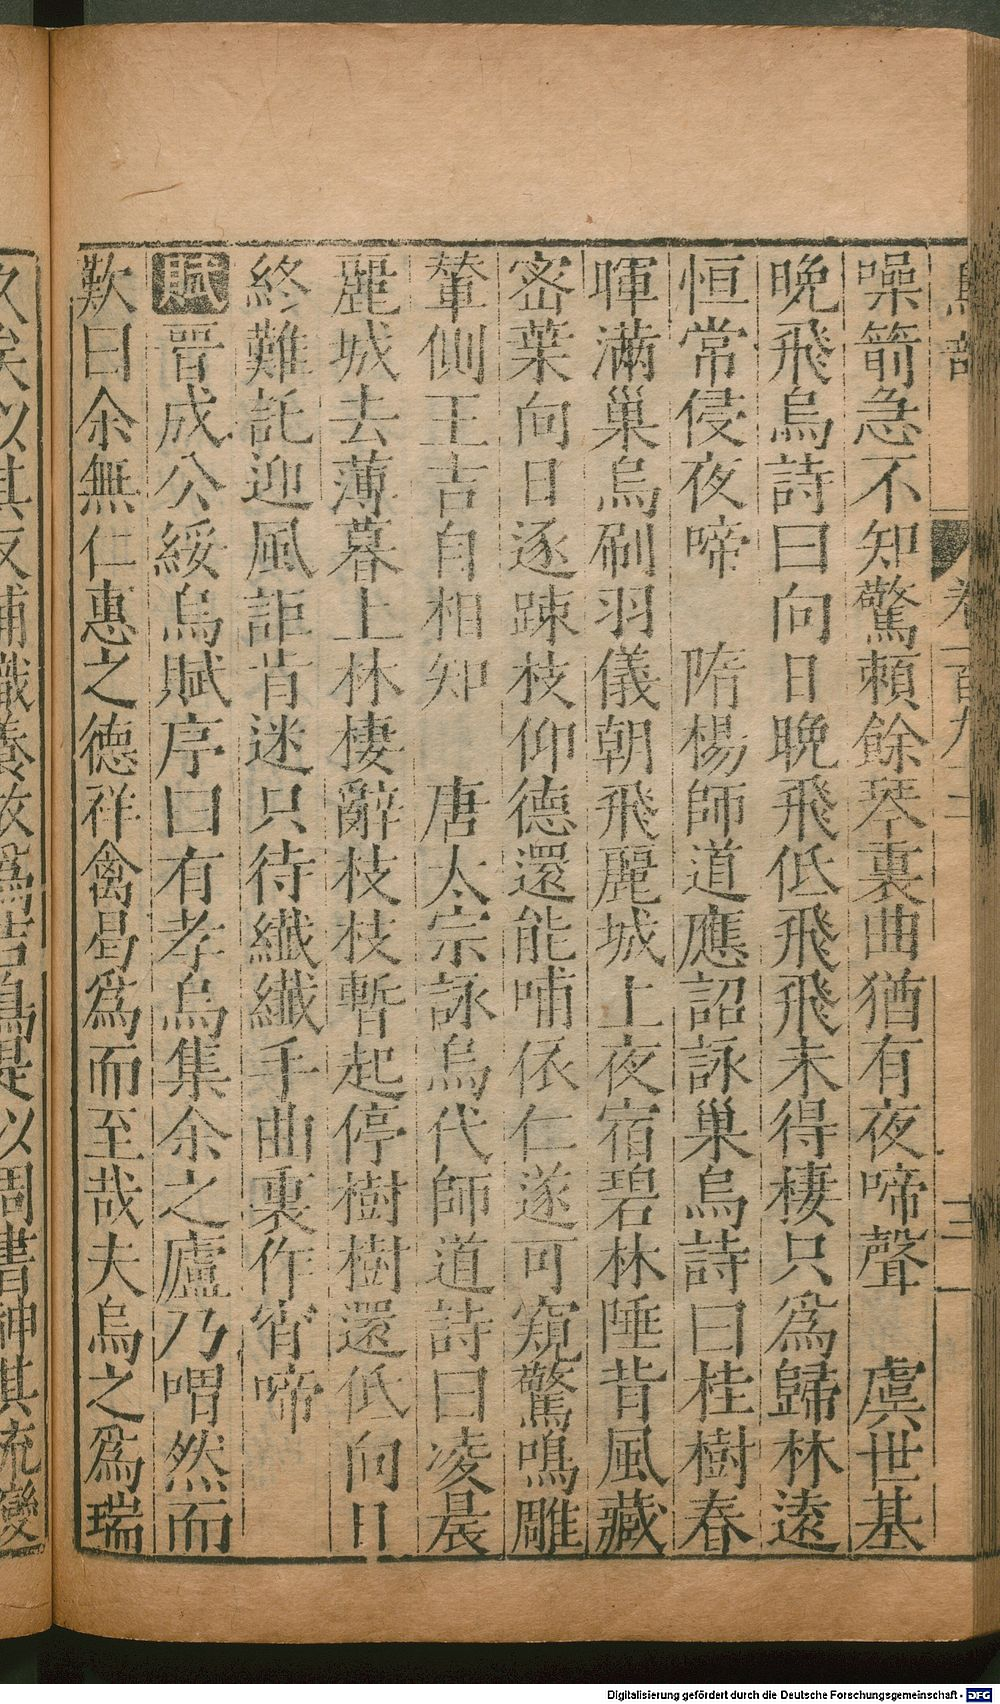 噪箭急不知驚賴餘琴裏曲猶有夜啼聲　虞世基
晚飛烏詩曰向日晚飛低飛飛未得棲只為歸林遠
恒常侵夜啼　隋楊師道應詔詠巢烏詩曰桂樹春
暉滿巢烏刷羽儀朝飛麗城上夜宿碧林陲背風藏
密葉向日逐踈枝仰德還能哺依仁遂可窺驚鳴雕
輦側王吉自相知　唐太宗詠烏代師道詩曰凌晨
麗城去薄暮上林棲辭枝枝暫起停樹樹還低向日
終難託迎風詎肯迷只待纖纖手曲裏作宵啼
賦晉成公綏烏賦序曰有孝烏集余之廬乃喟然而
歎曰余無仁惠之德祥禽曷為而至哉夫烏之為瑞
久矣以其反哺識養故為吉鳥是以周書神其流變
Digitalisierung gefördert durch die Deutsche Forschungsgemeinschaft - DFG